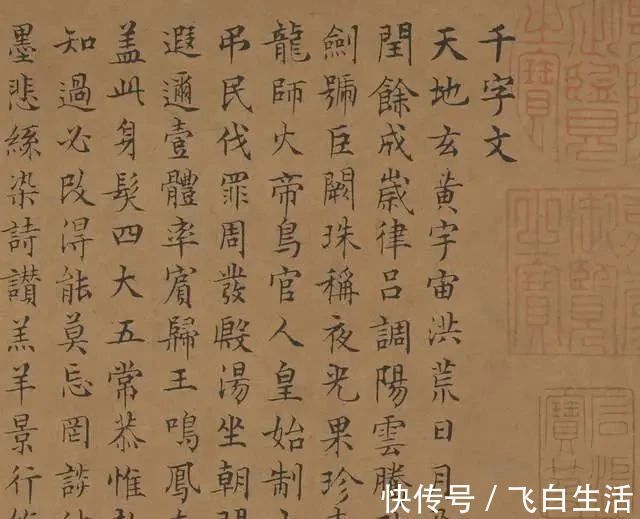 千字文
天地玄黃宇宙洪荒日月
閏餘成歲律呂調陽雲騰
劍號巨闕珠稱夜光果珍
龍師火帝鳥官人皇始制
吊民伐罪周發殷湯坐朝
遐邇壹體率賓歸王鳴鳳
盖此身髮四大五常恭惟
知過必改得能莫忘罔談
墨悲絲染詩讚羔羊景行
快传号／飞白生活